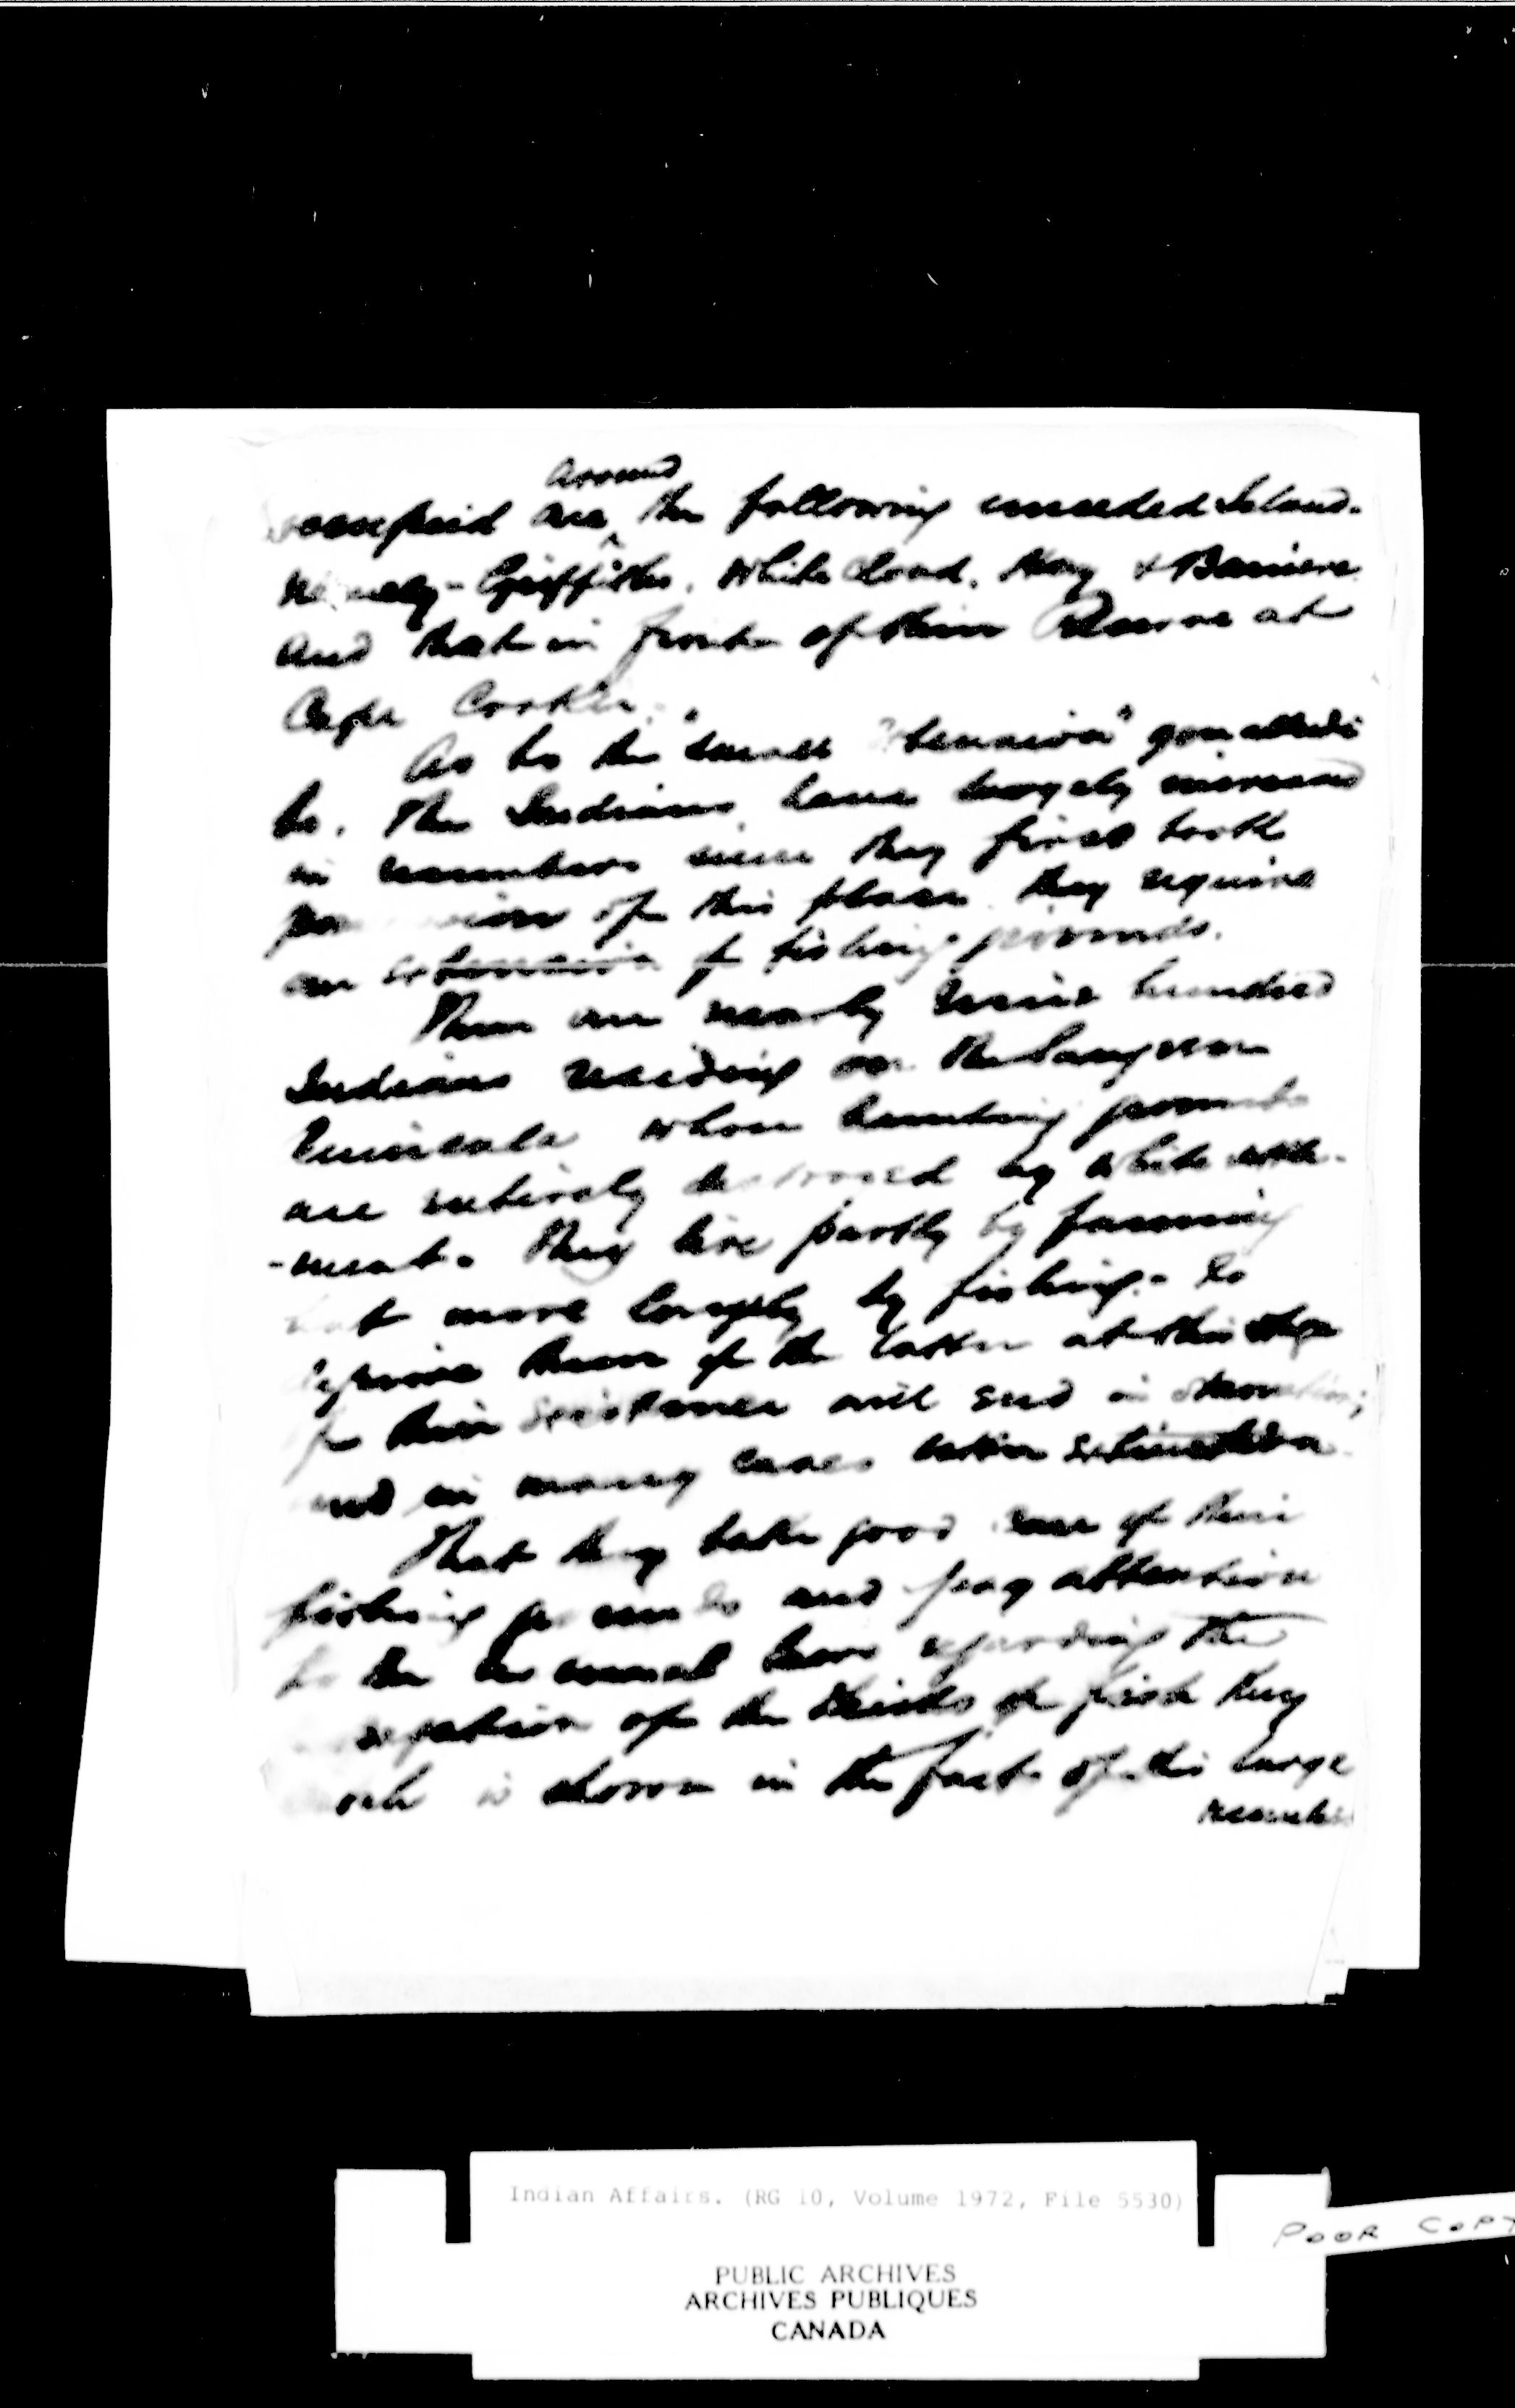 around
occupied are the following unceded Island-
namely - Griffiths, White Cloud, Hay & Barriere
and that in front of their Reserve at
Cape Croker.
As to the "small extension" you allude
to. The Indians have largely increased
in numbers since they first took
possession of this place they require
an extension of fishing grounds.
There are nearly nine hundred
Indians residing on the Saugeen
Peninsula whose hunting grounds
are entirely destroyed by white settle-
-ment. They live partly by farming
but more largely by fishing. To
deprive them of the latter at this stage
of their existence will end in starvation;
and in many cases utter extermination
That they take good care of their
fishing grounds and pay attention
to the usual laws regarding the
of the kinds of fish they
is shown in the fact of the large
number
Indian Affairs. (RG 10, Volume 1972, File 5530)
POOR COPY
PUBLIC ARCHIVES
ARCHIVES PUBLIQUES
CANADA